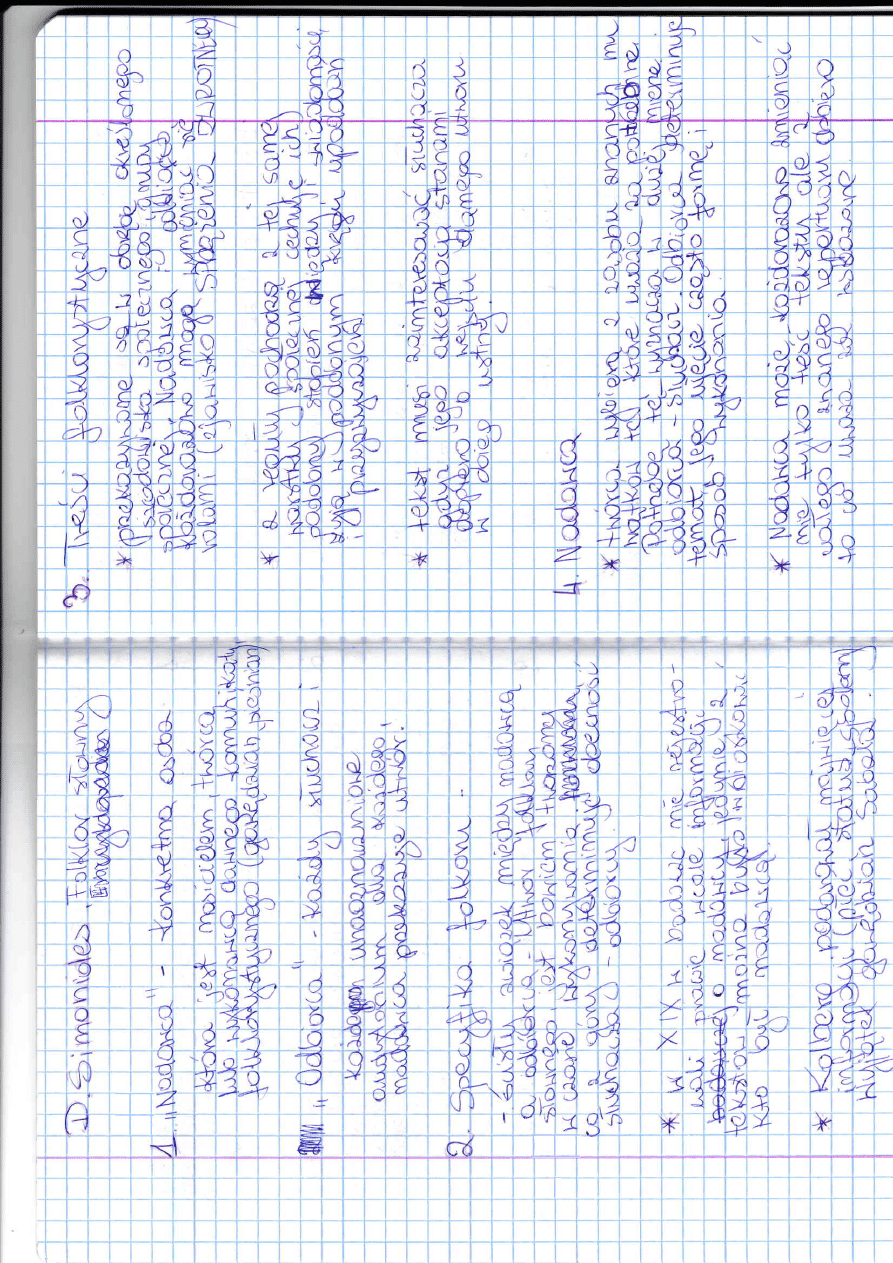 D. Simonides, Folklor słowny
1. "Nadawca" - konkretna osoba
która jest nosicielem, twórcą
lub wykonawcą danego komunikatu
folklorystycznego (gawędziarz, pieśniarz)
"Odbiorca" - każdy słuchacz i
unaocznione
audytorium dla każdego
nadawca przekazuje utwór.
2. Specyfika folkoru -
- ścisły związek między nadawcą
a odbiorcą. Utwór folkloru
słownego jest bowiem tworzony
w czasie wykonywania
co z góry determinuje obecność
słuchaczy - odbiorcy.
* W XIX w badacze nie rejestro-
wali prawie wcale informacji
o nadawcy, jedynie z
tekstów można było wnioskować
kto był nadawcą.
* Kolberg podawał najwięcej
informacji (płeć, status społeczny)
Wyjątek gawędziarz Sabała.
3. Treści folklorystyczne
* przekazywane są w obrębie określonego
środowiska społecznego i grupy
społecznej. Nadawca i odbiorca
każdorazowo mogą wymieniać się
rolami (zjawisko SPRZĘŻENIA ZWROTNEGO)
* z reguły pochodzą z tej samej
warstwy społecznej, cechuje ich
podobny stopień wiedzy i świadomości,
żyją w podobnym kręgu upodobań
i przyzwyczajeń.
* tekst musi zainteresować słuchacza
gdyż jego akceptacja stanowi
dopiero o wejściu danego utworu
w obieg ustny.
4. Nadawca
* twórca wybiera z zasobu znanych mu
wątków te, które uważa za potrzebne.
Potrzebę tę wyznacza w dużej mierze
odbiorca - słuchacz. Odbiorca determinuje
temat, jego ujęcie często formę i
sposób wykonania.
* Nadawca może każdorazowo zmieniać
nie tylko treść tekstu, ale z
całego znanego repertuaru dobiera
to co uważa za wskazane.